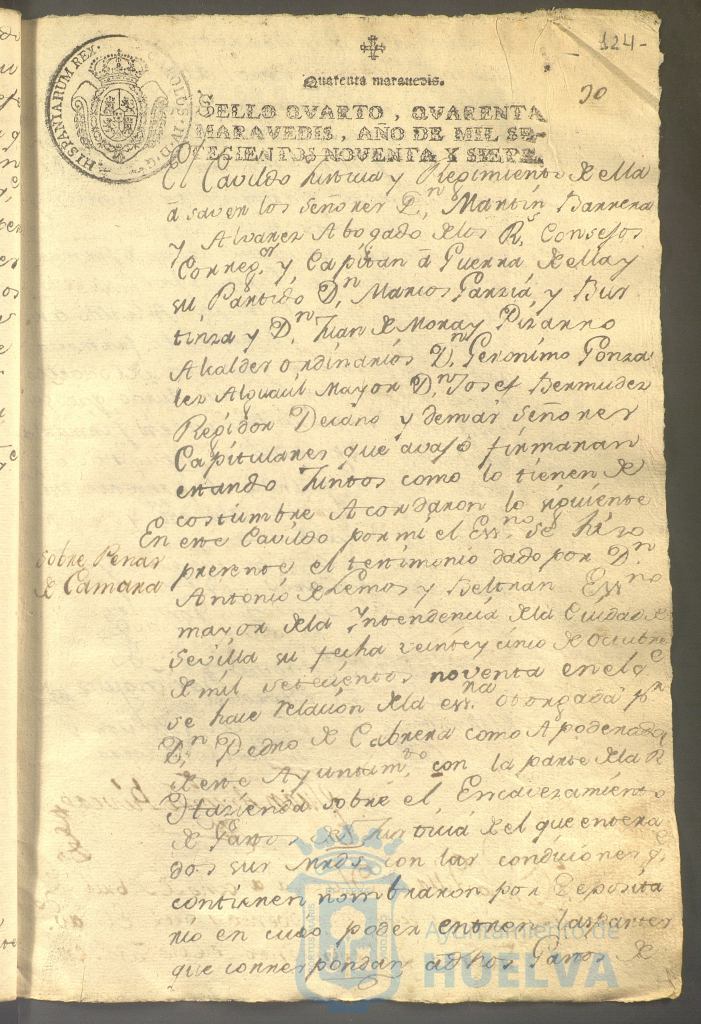 124-
30
Quarenta maravedis.
HISPANIARUM REX. CAROLUS IV D. G.
SELLO QVARTO, QVARENTA
MARAVEDIS, AÑO DE MIL SE-
TECIENTOS NOVENTA Y SIETE.
El Cavildo Justicia y Regimiento de ella
â saver los señores Dn. Martin Barrera
y Alvarez Abogado de los Rs. Consejos
Correg.or y Capitan â Guerra de ella y
su Partido Dn. Marcos Garzia, y Bur
tinza y Dn. Juan de Mora y Pizarro
Alcaldes ordinarios Dn. Geronimo Gonza
lez Alguacil Mayor Dn. Josef Bermudez
Regidor Decano y demas Señores
Capitulares que avajo firmaran
estando Juntos como lo tienen de
costumbre Acordaron lo siguiente
En este Cavildo por mi el Ess.no se hizo
sobre Penas
de Camara
presente el testimonio dado por Dn.
Antonio de Lemos y Beltran Ess.no
mayor de la Intendencia de la Ciudad de
Sevilla su fecha veinte y cinco de Octubre
de mil setecientos noventa en el q.e
se hace relacion de la ess.ra otorgada p.r
Dn. Pedro de Cabrera como Apoderado
de este Ayuntam.to con la parte de la R.
Hazienda sobre el Encavezamiento
de Gastos de Justicia de el que entera
dos sus mrds. con las condiciones q.e
contienen nombraron por Deposita
rio en cuio poder entren las partes
que correspondan a dhos Gastos de
Ayuntamiento de
HUELVA